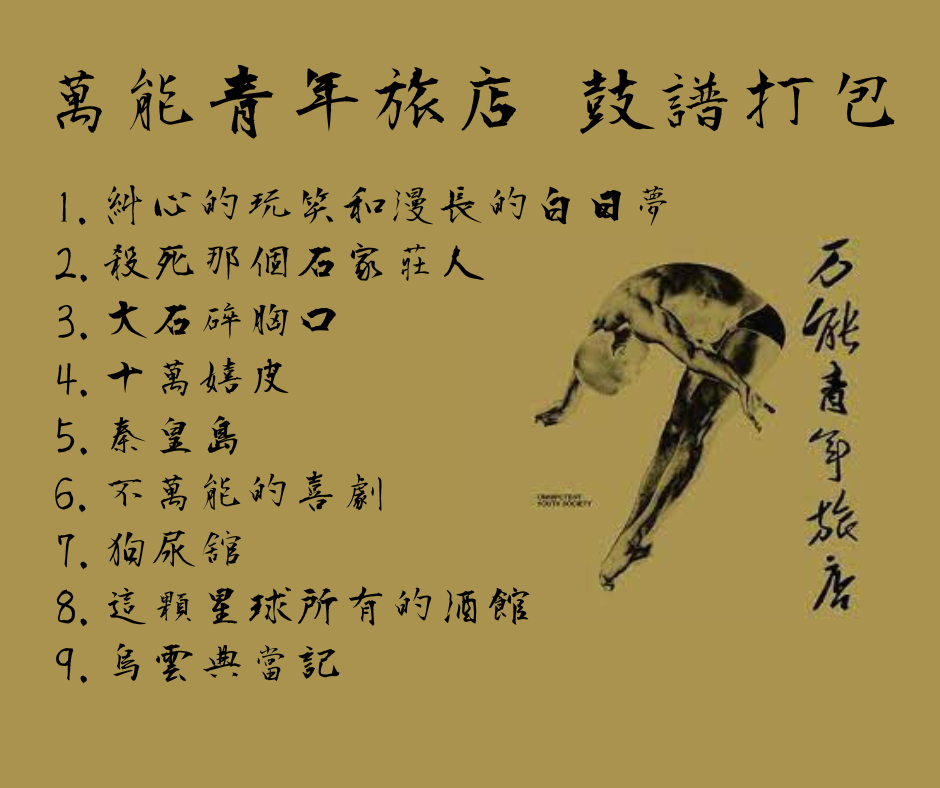 萬能青年旅店 鼓譜打包
1. 糾心的玩笑和漫長的白日夢
2. 殺死那個石家莊人
3. 大石碎胸口
4. 十萬嬉皮
5. 秦皇島
6. 不萬能的喜劇
7. 狗尿舘
8. 這顆星球所有的酒館
9. 烏雲典當記
万能青年旅店
OMNIPOTENT
YOUTH SOCIETY